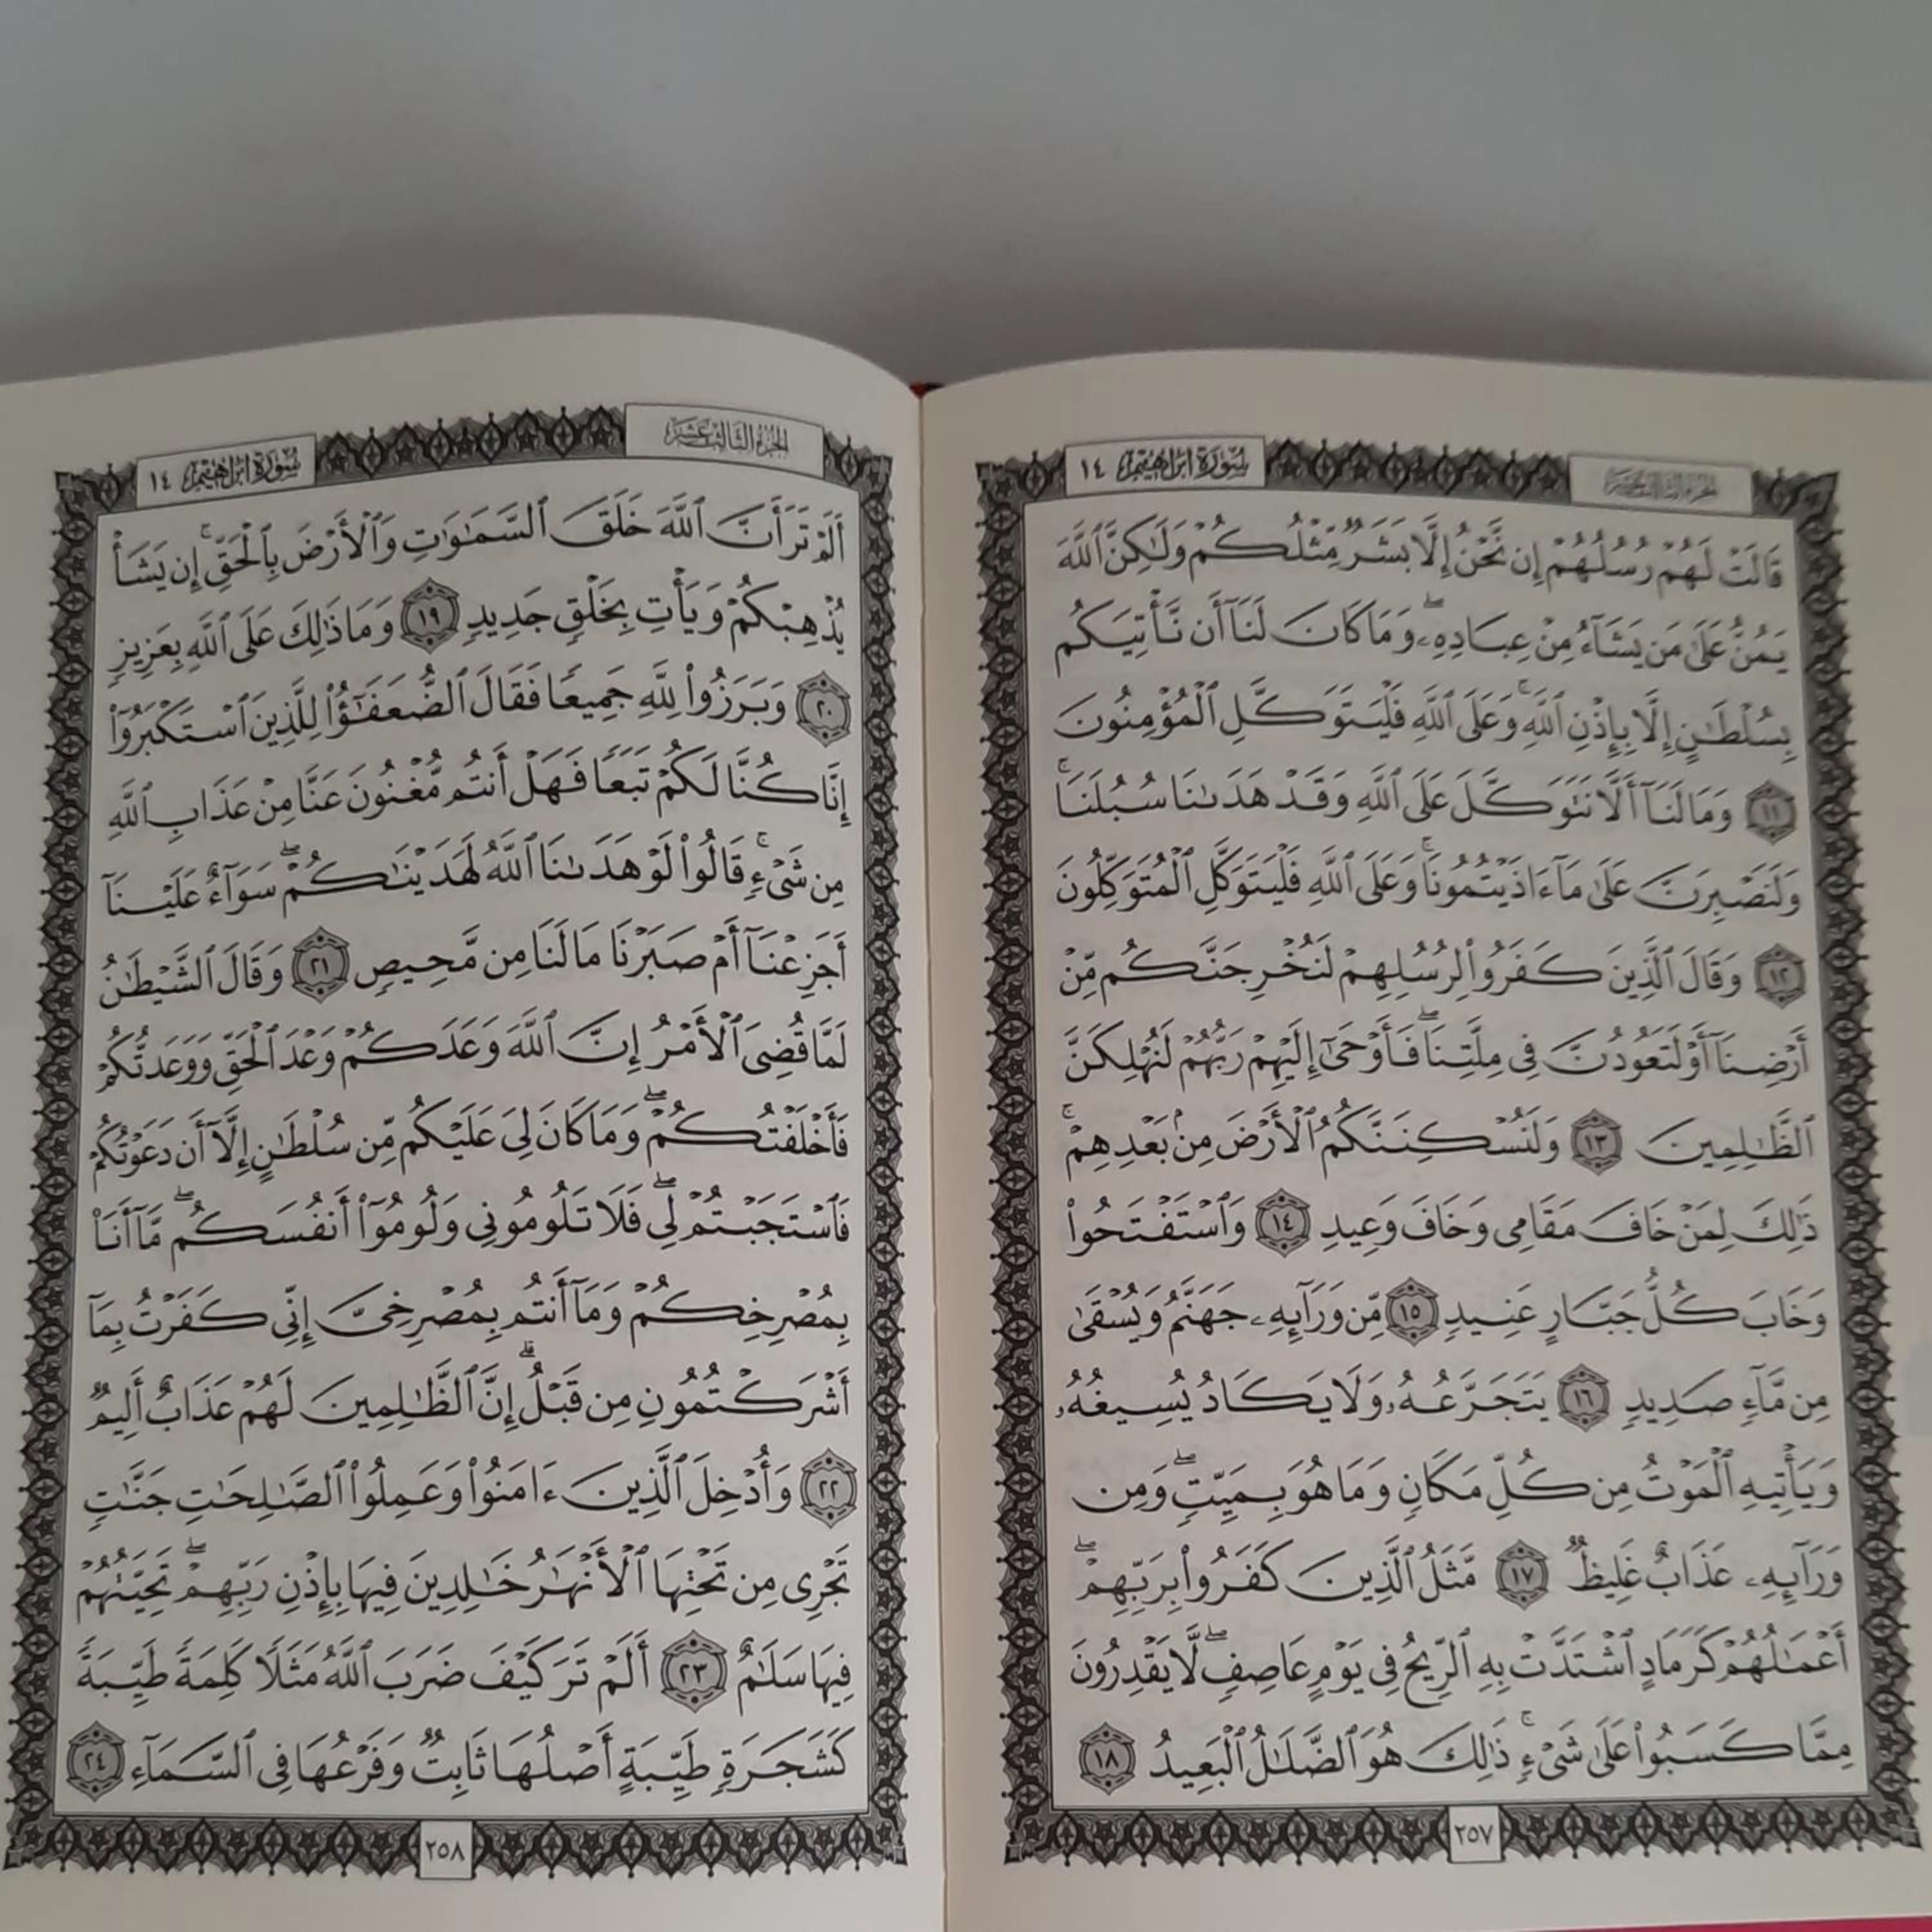 الجزء الثالث عشر
سورة ابراهيم ١٤
قَالَتْ لَهُمْ رُسُلُهُمْ إِن نَّحْنُ إِلَّا بَشَرٌ مِّثْلُكُمْ وَلَٰكِنَّ ٱللَّهَ
يَمُنُّ عَلَىٰ مَن يَشَآءُ مِنْ عِبَادِهِۦۖ وَمَا كَانَ لَنَآ أَن نَّأْتِيَكُم
بِسُلْطَٰنٍ إِلَّا بِإِذْنِ ٱللَّهِۚ وَعَلَى ٱللَّهِ فَلْيَتَوَكَّلِ ٱلْمُؤْمِنُونَ
١١ وَمَا لَنَآ أَلَّا نَتَوَكَّلَ عَلَى ٱللَّهِ وَقَدْ هَدَىٰنَا سُبُلَنَاۚ
وَلَنَصْبِرَنَّ عَلَىٰ مَآ ءَاذَيْتُمُونَاۚ وَعَلَى ٱللَّهِ فَلْيَتَوَكَّلِ ٱلْمُتَوَكِّلُونَ
١٢ وَقَالَ ٱلَّذِينَ كَفَرُوا۟ لِرُسُلِهِمْ لَنُخْرِجَنَّكُم مِّنْ
أَرْضِنَآ أَوْ لَتَعُودُنَّ فِى مِلَّتِنَاۖ فَأَوْحَىٰٓ إِلَيْهِمْ رَبُّهُمْ لَنُهْلِكَنَّ
ٱلظَّٰلِمِينَ ١٣ وَلَنُسْكِنَنَّكُمُ ٱلْأَرْضَ مِنۢ بَعْدِهِمْۚ
ذَٰلِكَ لِمَنْ خَافَ مَقَامِى وَخَافَ وَعِيدِ ١٤ وَٱسْتَفْتَحُوا۟
وَخَابَ كُلُّ جَبَّارٍ عَنِيدٍ ١٥ مِّن وَرَآئِهِۦ جَهَنَّمُ وَيُسْقَىٰ
مِن مَّآءٍ صَدِيدٍ ١٦ يَتَجَرَّعُهُۥ وَلَا يَكَادُ يُسِيغُهُۥ
وَيَأْتِيهِ ٱلْمَوْتُ مِن كُلِّ مَكَانٍ وَمَا هُوَ بِمَيِّتٍۖ وَمِن
وَرَآئِهِۦ عَذَابٌ غَلِيظٌ ١٧ مَّثَلُ ٱلَّذِينَ كَفَرُوا۟ بِرَبِّهِمْۖ
أَعْمَٰلُهُمْ كَرَمَادٍ ٱشْتَدَّتْ بِهِ ٱلرِّيحُ فِى يَوْمٍ عَاصِفٍۖ لَّا يَقْدِرُونَ
مِمَّا كَسَبُوا۟ عَلَىٰ شَىْءٍۚ ذَٰلِكَ هُوَ ٱلضَّلَٰلُ ٱلْبَعِيدُ ١٨
٢٥٧
الجزء الثالث عشر
سورة ابراهيم ١٤
أَلَمْ تَرَ أَنَّ ٱللَّهَ خَلَقَ ٱلسَّمَٰوَٰتِ وَٱلْأَرْضَ بِٱلْحَقِّۚ إِن يَشَأْ
يُذْهِبْكُمْ وَيَأْتِ بِخَلْقٍ جَدِيدٍ ١٩ وَمَا ذَٰلِكَ عَلَى ٱللَّهِ بِعَزِيزٍ
٢٠ وَبَرَزُوا۟ لِلَّهِ جَمِيعًا فَقَالَ ٱلضُّعَفَٰٓؤُا۟ لِلَّذِينَ ٱسْتَكْبَرُوٓا۟
إِنَّا كُنَّا لَكُمْ تَبَعًا فَهَلْ أَنتُم مُّغْنُونَ عَنَّا مِنْ عَذَابِ ٱللَّهِ
مِن شَىْءٍۚ قَالُوا۟ لَوْ هَدَىٰنَا ٱللَّهُ لَهَدَيْنَٰكُمْۖ سَوَآءٌ عَلَيْنَآ
أَجَزِعْنَآ أَمْ صَبَرْنَا مَا لَنَا مِن مَّحِيصٍ ٢١ وَقَالَ ٱلشَّيْطَٰنُ
لَمَّا قُضِىَ ٱلْأَمْرُ إِنَّ ٱللَّهَ وَعَدَكُمْ وَعْدَ ٱلْحَقِّ وَوَعَدتُّكُمْ
فَأَخْلَفْتُكُمْۖ وَمَا كَانَ لِىَ عَلَيْكُم مِّن سُلْطَٰنٍ إِلَّآ أَن دَعَوْتُكُمْ
فَٱسْتَجَبْتُمْ لِىۖ فَلَا تَلُومُونِى وَلُومُوٓا۟ أَنفُسَكُمۖ مَّآ أَنَا۠
بِمُصْرِخِكُمْ وَمَآ أَنتُم بِمُصْرِخِىَّ إِنِّى كَفَرْتُ بِمَآ
أَشْرَكْتُمُونِ مِن قَبْلُۗ إِنَّ ٱلظَّٰلِمِينَ لَهُمْ عَذَابٌ أَلِيمٌ
٢٢ وَأُدْخِلَ ٱلَّذِينَ ءَامَنُوا۟ وَعَمِلُوا۟ ٱلصَّٰلِحَٰتِ جَنَّٰتٍ
تَجْرِى مِن تَحْتِهَا ٱلْأَنْهَٰرُ خَٰلِدِينَ فِيهَا بِإِذْنِ رَبِّهِمْۖ تَحِيَّتُهُمْ
فِيهَا سَلَٰمٌ ٢٣ أَلَمْ تَرَ كَيْفَ ضَرَبَ ٱللَّهُ مَثَلًا كَلِمَةً طَيِّبَةً
كَشَجَرَةٍ طَيِّبَةٍ أَصْلُهَا ثَابِتٌ وَفَرْعُهَا فِى ٱلسَّمَآءِ ٢٤
٢٥٨